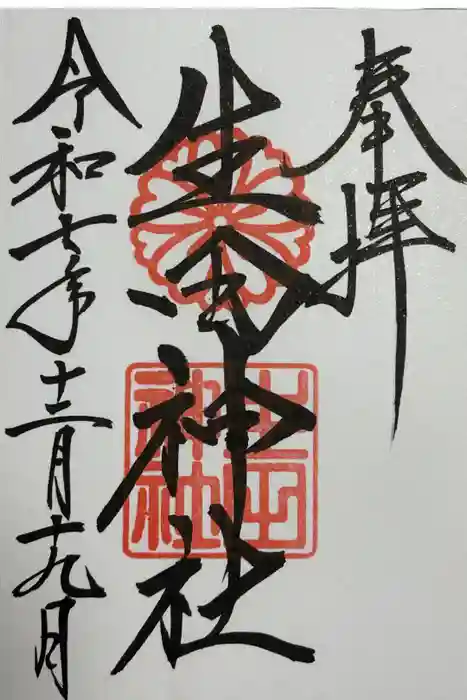 奉拝
生 神社
令和七年十二月十九日
神社